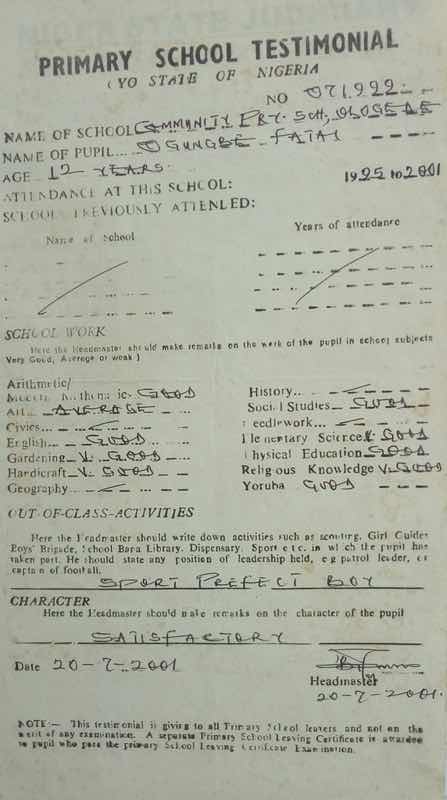 PRIMARY SCHOOL TESTIMONIAL
OYO STATE OF NIGERIA
NO 071922
NAME OF SCHOOL COMMUNITY PRY. SCH,
NAME OF PUPIL..... OGUNGBE FATAI
AGE 12 YEARS
ATTENDANCE AT THIS SCHOOL: 1995 to 2001
SCHOOLS PREVIOUSLY ATTENDED:
Name of School Years of attendance
SCHOOL WORK
Here the Headmaster should make remarks on the work of the pupil in school subjects
Very Good, Average or weak)
Arithmetic/
Modern Mathematics GOOD
Art AVERAGE
Civics...
English... GOOD
Gardening V. GOOD
Handicraft V. GOOD
Geography
History...
Social Studies GOOD
Needlework...
Elementary Science V. GOOD
Physical Education GOOD
Religious Knowledge V. GOOD
Yoruba GOOD
OUT-OF-CLASS-ACTIVITIES
Here the Headmaster should write down activities such as scouting, Girl Guides
Boys' Brigade, School Band Library. Dispensary. Sport etc. in which the pupil has
taken part. He should state any position of leadership held, e g patrol leader, or
captain of football.
SPORT PREFECT BOY
CHARACTER
Here the Headmaster should make remarks on the character of the pupil
SATISFACTORY
Date 20-7-2001
Headmaster
20-7-2001.
NOTE:— This testimonial is given to all Primary School leavers and not on the
merit of any examination. A separate Primary School Leaving Certificate is awarded
to pupil who pass the primary School Leaving Certificate Examination.